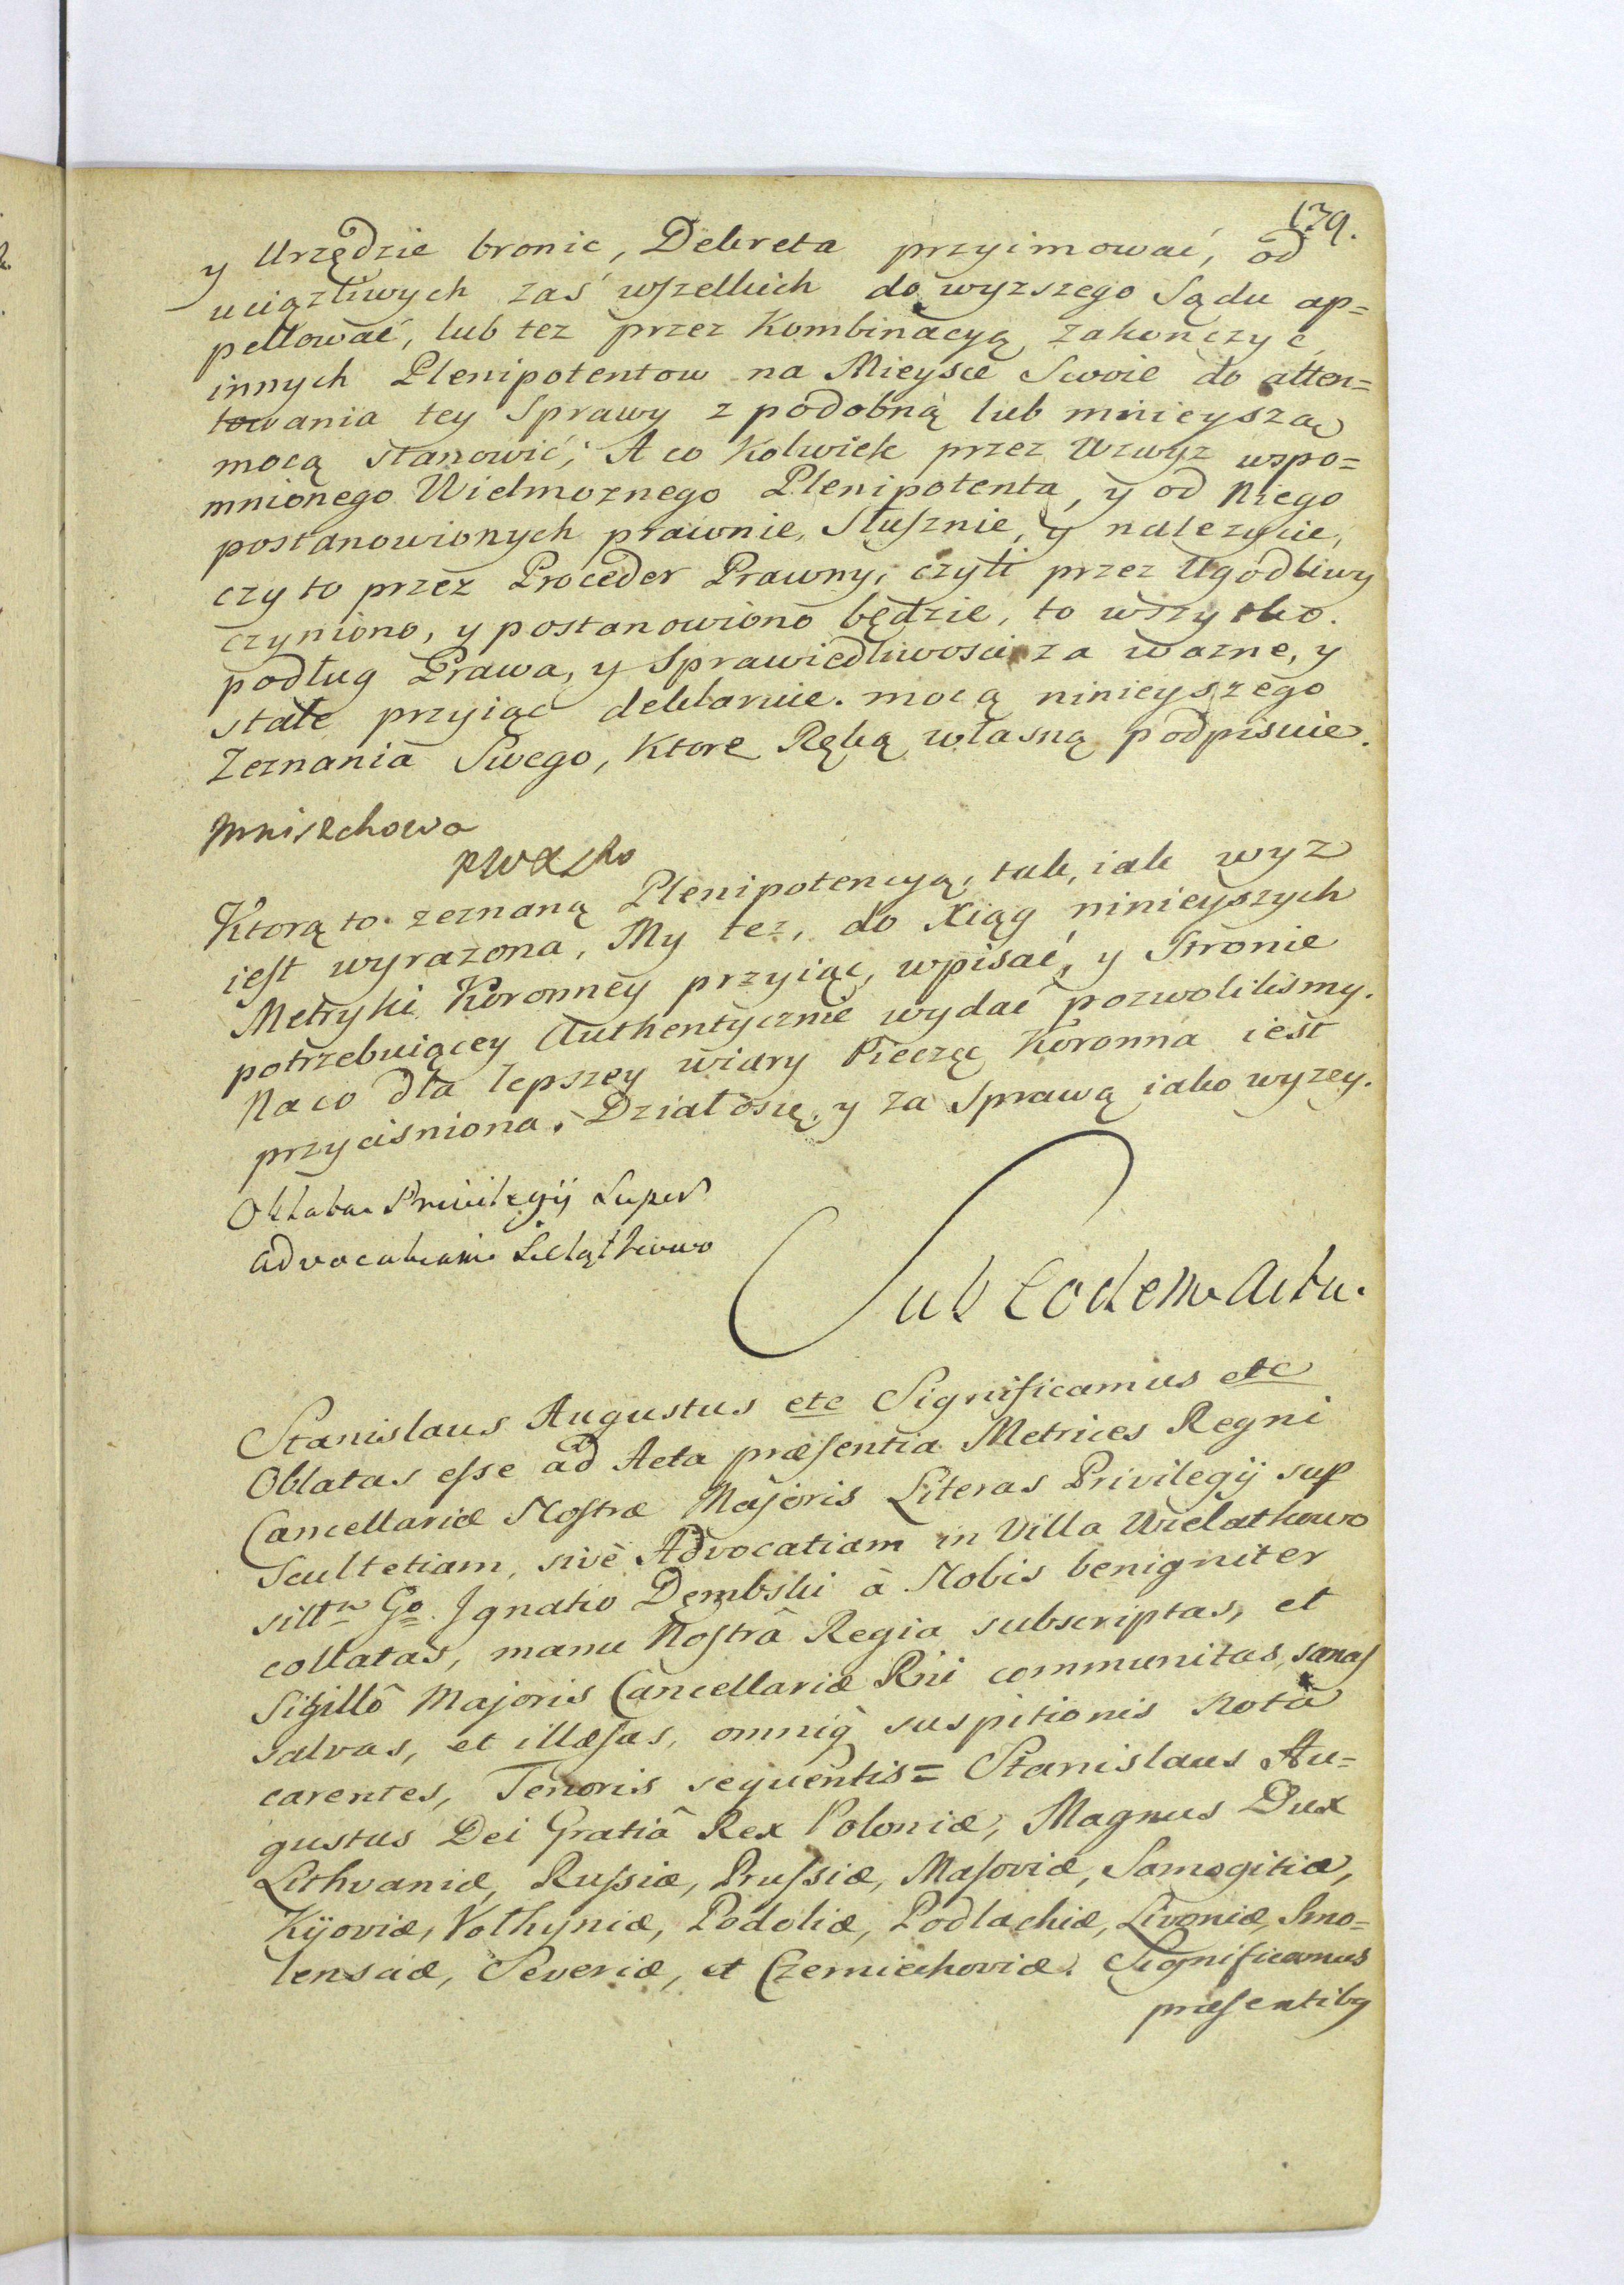 179.
y Urzędzie bronic, Dekreta przyimować, od
uciązliwych zaś wszelkich do wyzszego Sądu ap=
pellować, lub tez przez Kombinacyą zakończyć,
innych Plenipotentow na Mieysce Swoie do atten=
towania tey Sprawy z podobną lub mnieyszą
mocą stanowić; A co Kolwiek przez Wzwyż wspo=
mnionego Wielmoznego Plenipotenta, y od Niego
postanowionych prawnie, Słusznie, y nalezycie,
czy to przez Proceder Prawny, czyli przez Ugodliwy
czyniono, y postanowiono będzie, to wszystko.
podług Prawa, y Sprawiedliwosci za wazne, y
stałe przyiąc deklaruie. mocą ninieyszego
Zeznania Swego, Ktore Ręką własną podpisuie.
Mniszchowa
Ktorą to zeznaną Plenipotencyą, tak, iak wyz
iest wyrazona, My tez, do Xiąg ninieyszych
Metryki Koronney przyiąc, wpisać, y Stronie
potrzebuiącey Authentycznie wydać pozwolilismy.
Na co dla lepszey wiary Pieczęc Koronna iest
przycisniona. Działosię, y za Sprawą iako wyzey.
Oblata Privilegij Super
Advocatiam
Sub Eodem Actu.
Stanislaus Augustus etc Significamus etc
Oblatas esse ad Acta præsentia Metrices Regni
Cancellariæ Nostræ Majoris Literas Privilegij sup
Scultetiam, sivè Advocatiam in Villa Wielatkowo
Gō Ignatio Dembski à Nobis benigniter
collatas, manu Nostrâ Regia subscriptas, et
Sigillô Majoris Cancellariæ Rni communitas, sanas
salvas, et illæsas, omniq suspitionis Notâ
carentes, Tenoris sequentis = Stanislaus Au=
gustus Dei Gratiâ Rex Poloniæ, Magnus Dux
Lithvaniæ, Russiæ, Prussiæ, Masoviæ, Samogitiæ,
Kijoviæ, Volhyniæ, Podoliæ, Podlachiæ, Livoniæ, Smo=
lensciæ, Severiæ, et Czerniechoviæ. Significamus
præsentibq